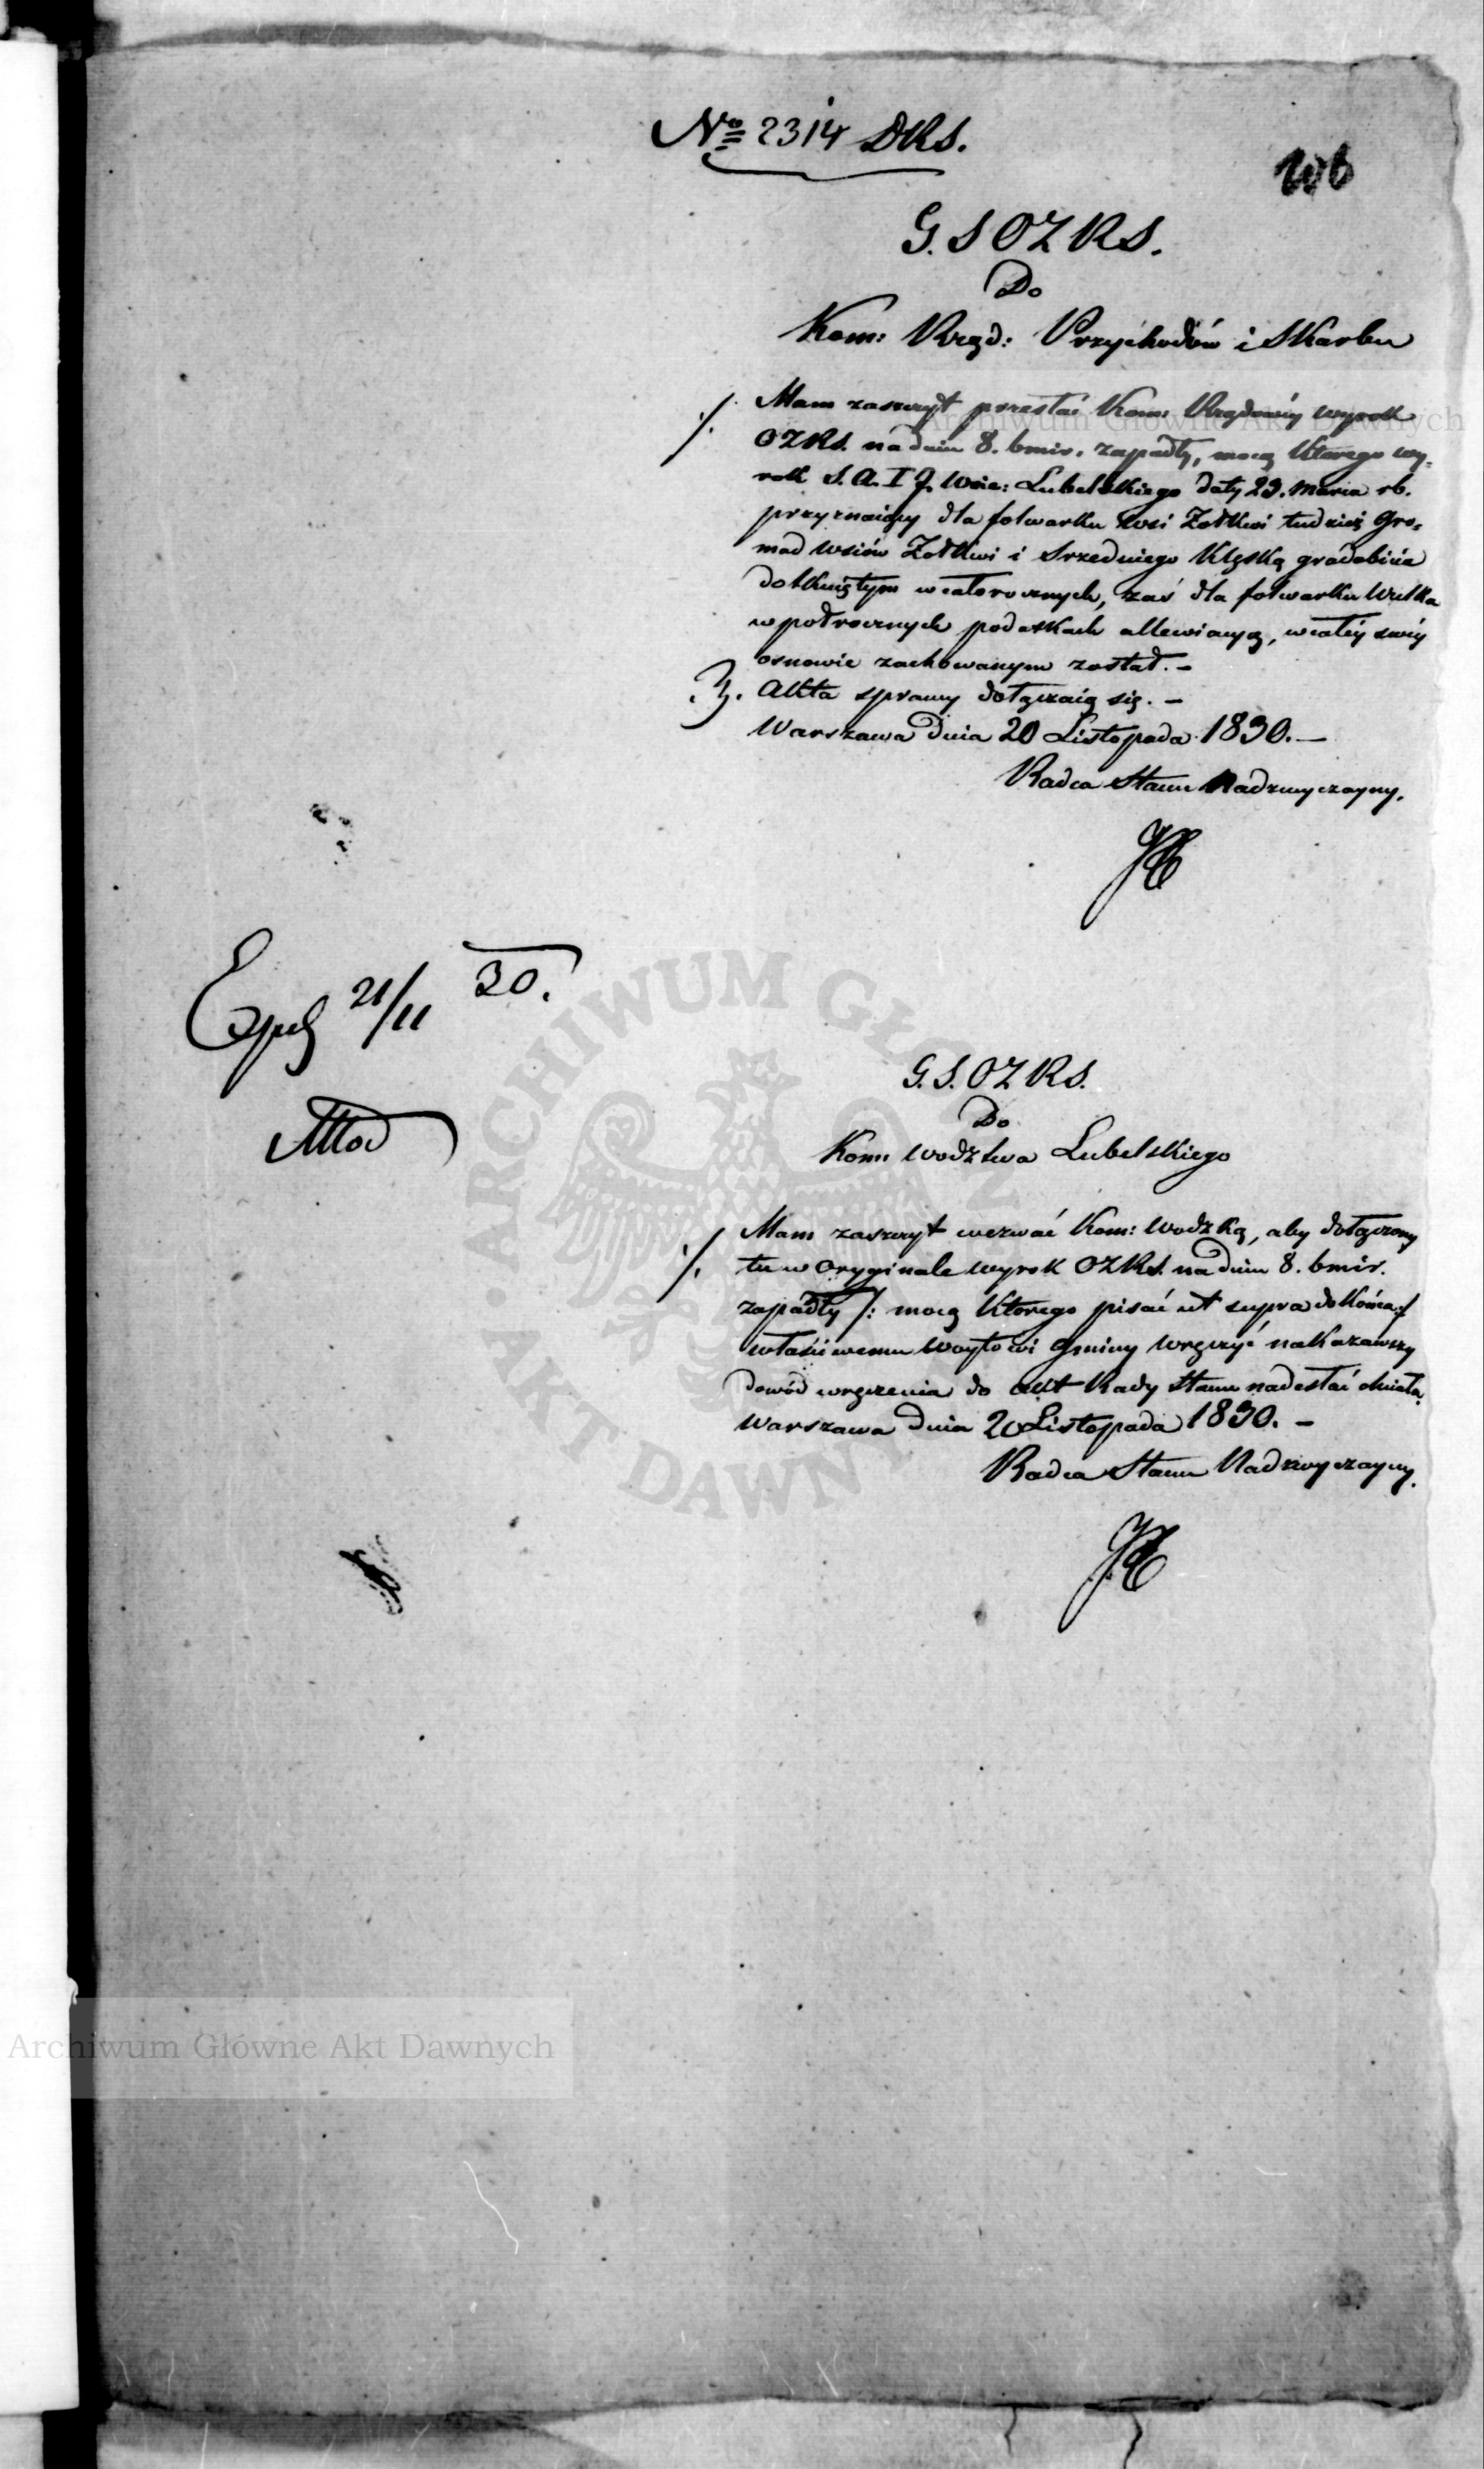 No 2314 DRS.
G. S OZ RS.
Do
Kom: Rząd: Przychodów i Skarbu
./. Mam zaszczyt przesłać Kom: Rządowéy wyrok
OZRS. na dniu 8. bmir. zapadły, mocą którego wy-
rok S. A. I J. Woie: Lubelskiego daty 23. Marca rb.
przyznaiący dla folwarku wsi Żołkwi tudzież Gro-
mad Wsiów Żołkwi i Srzedniego Klęską gradobicia
dotkniętym w całorocznych, zaś dla folwarku Wulka
w połrocznych podatkach allewiacyą, w całéy swéy
osnowie zachowanym został. -
3. Akta sprawy dołączaią się. -
Warszawa Dnia 20 Listopada 1830. -
Radca Stanu Nadzwyczayny.
Exped 21/11 30.
G. S. OZ RS.
Do
Kom: Wodztwa Lubelskiego
./. Mam zaszczyt wezwać Kom: Wodzką, aby dołączony
tu w Oryginale wyrok OZRS. na dniu 8. bmir.
zapadły /: mocą którego pisać ut supra do końca :/
właściwemu Woytowi Gminy wręczyć nakazawszy
Dowód wręczenia do Akt Rady Stanu nadesłać chciała.
Warszawa Dnia 20 Listopada 1830. -
Radca Stanu Nadzwyczayny.
Archiwum Główne Akt Dawnych
Archiwum Główne Akt Dawnych
ARCHIWUM GŁÓWNE AKT DAWNYCH